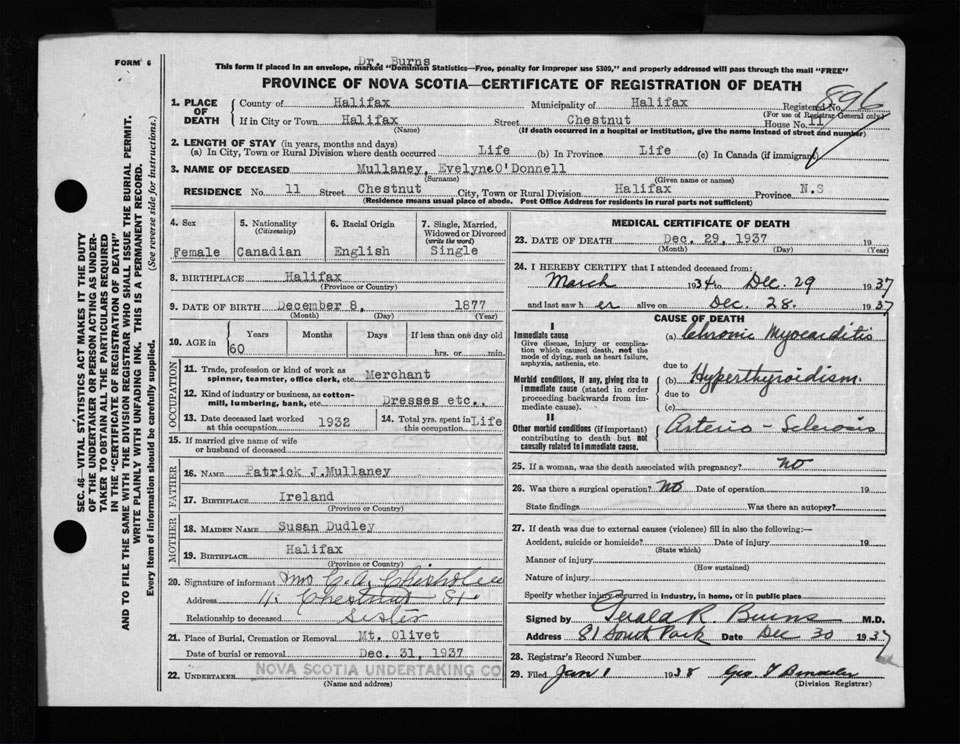 FORM 6
Dr. Burns
This form if placed in an envelope, marked "Dominion Statistics—Free, penalty for improper use $300," and properly addressed will pass through the mail "FREE"
PROVINCE OF NOVA SCOTIA—CERTIFICATE OF REGISTRATION OF DEATH
896
1. PLACE OF DEATH
County of Halifax Municipality of Halifax Registered No.
(For use of Registrar General only)
If in City or Town Halifax Street Chestnut House No. 11
(Name) (If death occurred in a hospital or institution, give the name instead of street and number)
2. LENGTH OF STAY (in years, months and days)
(a) In City, Town or Rural Division where death occurred Life (b) In Province Life (c) In Canada (if immigrant)
3. NAME OF DECEASED Mullaney, Evelyn O'Donnell
(Surname) (Given name or names)
RESIDENCE No. 11 Street Chestnut City, Town or Rural Division Halifax Province N.S
(Residence means usual place of abode. Post Office Address for residents in rural parts not sufficient)
4. Sex
Female
5. Nationality
(Citizenship)
Canadian
6. Racial Origin
English
7. Single, Married, Widowed or Divorced
(write the word)
Single
8. BIRTHPLACE Halifax
(Province or Country)
9. DATE OF BIRTH December 8, 1877
(Month) (Day) (Year)
10. AGE in
Years Months Days If less than one day old
60 hrs. or min.
OCCUPATION
11. Trade, profession or kind of work as spinner, teamster, office clerk, etc. Merchant
12. Kind of industry or business, as cotton-mill, lumbering, bank, etc. Dresses etc.,
13. Date deceased last worked at this occupation 1932
14. Total yrs. spent in this occupation Life
15. If married give name of wife or husband of deceased
FATHER
16. NAME Patrick J.Mullaney
17. BIRTHPLACE Ireland
(Province or Country)
MOTHER
18. MAIDEN NAME Susan Dudley
19. BIRTHPLACE Halifax
(Province or Country)
20. Signature of informant Mrs C. A. Chisholm
Address 11 Chestnut St.
Relationship to deceased Sister
21. Place of Burial, Cremation or Removal Mt. Olivet
Date of burial or removal Dec. 31, 1937
22. UNDERTAKER NOVA SCOTIA UNDERTAKING CO
(Name and address)
MEDICAL CERTIFICATE OF DEATH
23. DATE OF DEATH Dec. 29, 1937 19
(Month) (Day)
24. I HEREBY CERTIFY that I attended deceased from:
March 1934 to Dec. 29 1937
and last saw her alive on Dec. 28. 1937
CAUSE OF DEATH
I
Immediate cause
Give disease, injury or complication which caused death, not the mode of dying, such as heart failure, asphyxia, asthenia, etc.
(a) Chronic Myocarditis
due to
Morbid conditions, if any, giving rise to immediate cause (stated in order proceeding backwards from immediate cause).
(b) Hyperthyroidism.
due to
(c)
II
Other morbid conditions (if important) contributing to death but not causally related to immediate cause.
Arterio-Sclerosis
25. If a woman, was the death associated with pregnancy? no
26. Was there a surgical operation? No Date of operation 19
State findings Was there an autopsy?
27. If death was due to external causes (violence) fill in also the following:—
Accident, suicide or homicide? Date of injury 19
(State which)
Manner of injury
(How sustained)
Nature of injury
Specify whether injury occurred in industry, in home, or in public place
Signed by Gerald R Burns M.D.
Address 81 South Park Date Dec 30 1937
28. Registrar's Record Number
29. Filed Jan 1 1938
(Division Registrar)
SEC. 46—VITAL STATISTICS ACT MAKES IT THE DUTY
OF THE UNDERTAKER OR PERSON ACTING AS UNDER-
TAKER TO OBTAIN ALL THE PARTICULARS REQUIRED
IN THE "CERTIFICATE OF REGISTRATION OF DEATH"
AND TO FILE THE SAME WITH THE DIVISION REGISTRAR WHO SHALL ISSUE THE BURIAL PERMIT.
WRITE PLAINLY WITH UNFADING INK. THIS IS A PERMANENT RECORD.
Every item of information should be carefully supplied. (See reverse side for instructions.)